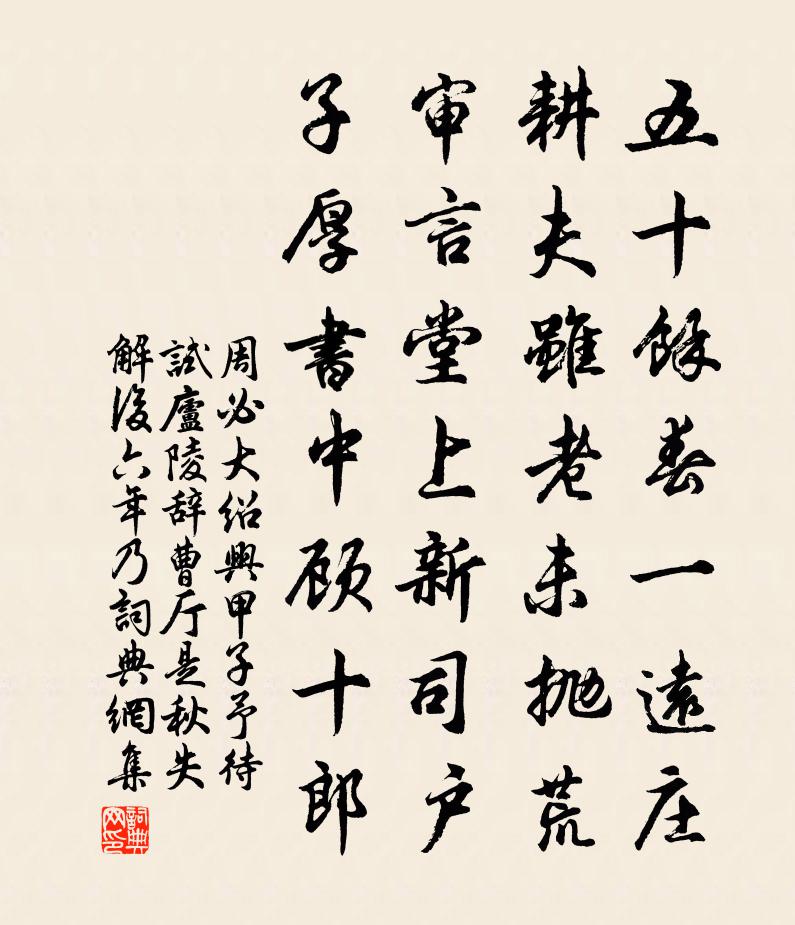 五十餘春一遠庄
耕夫雖老未抛荒
审言堂上新司户
子厚書中顾十郎
周必大绍興甲子予待
試廬陵辞曹厅是秋失
解後六年乃詞典網集
詞典网印